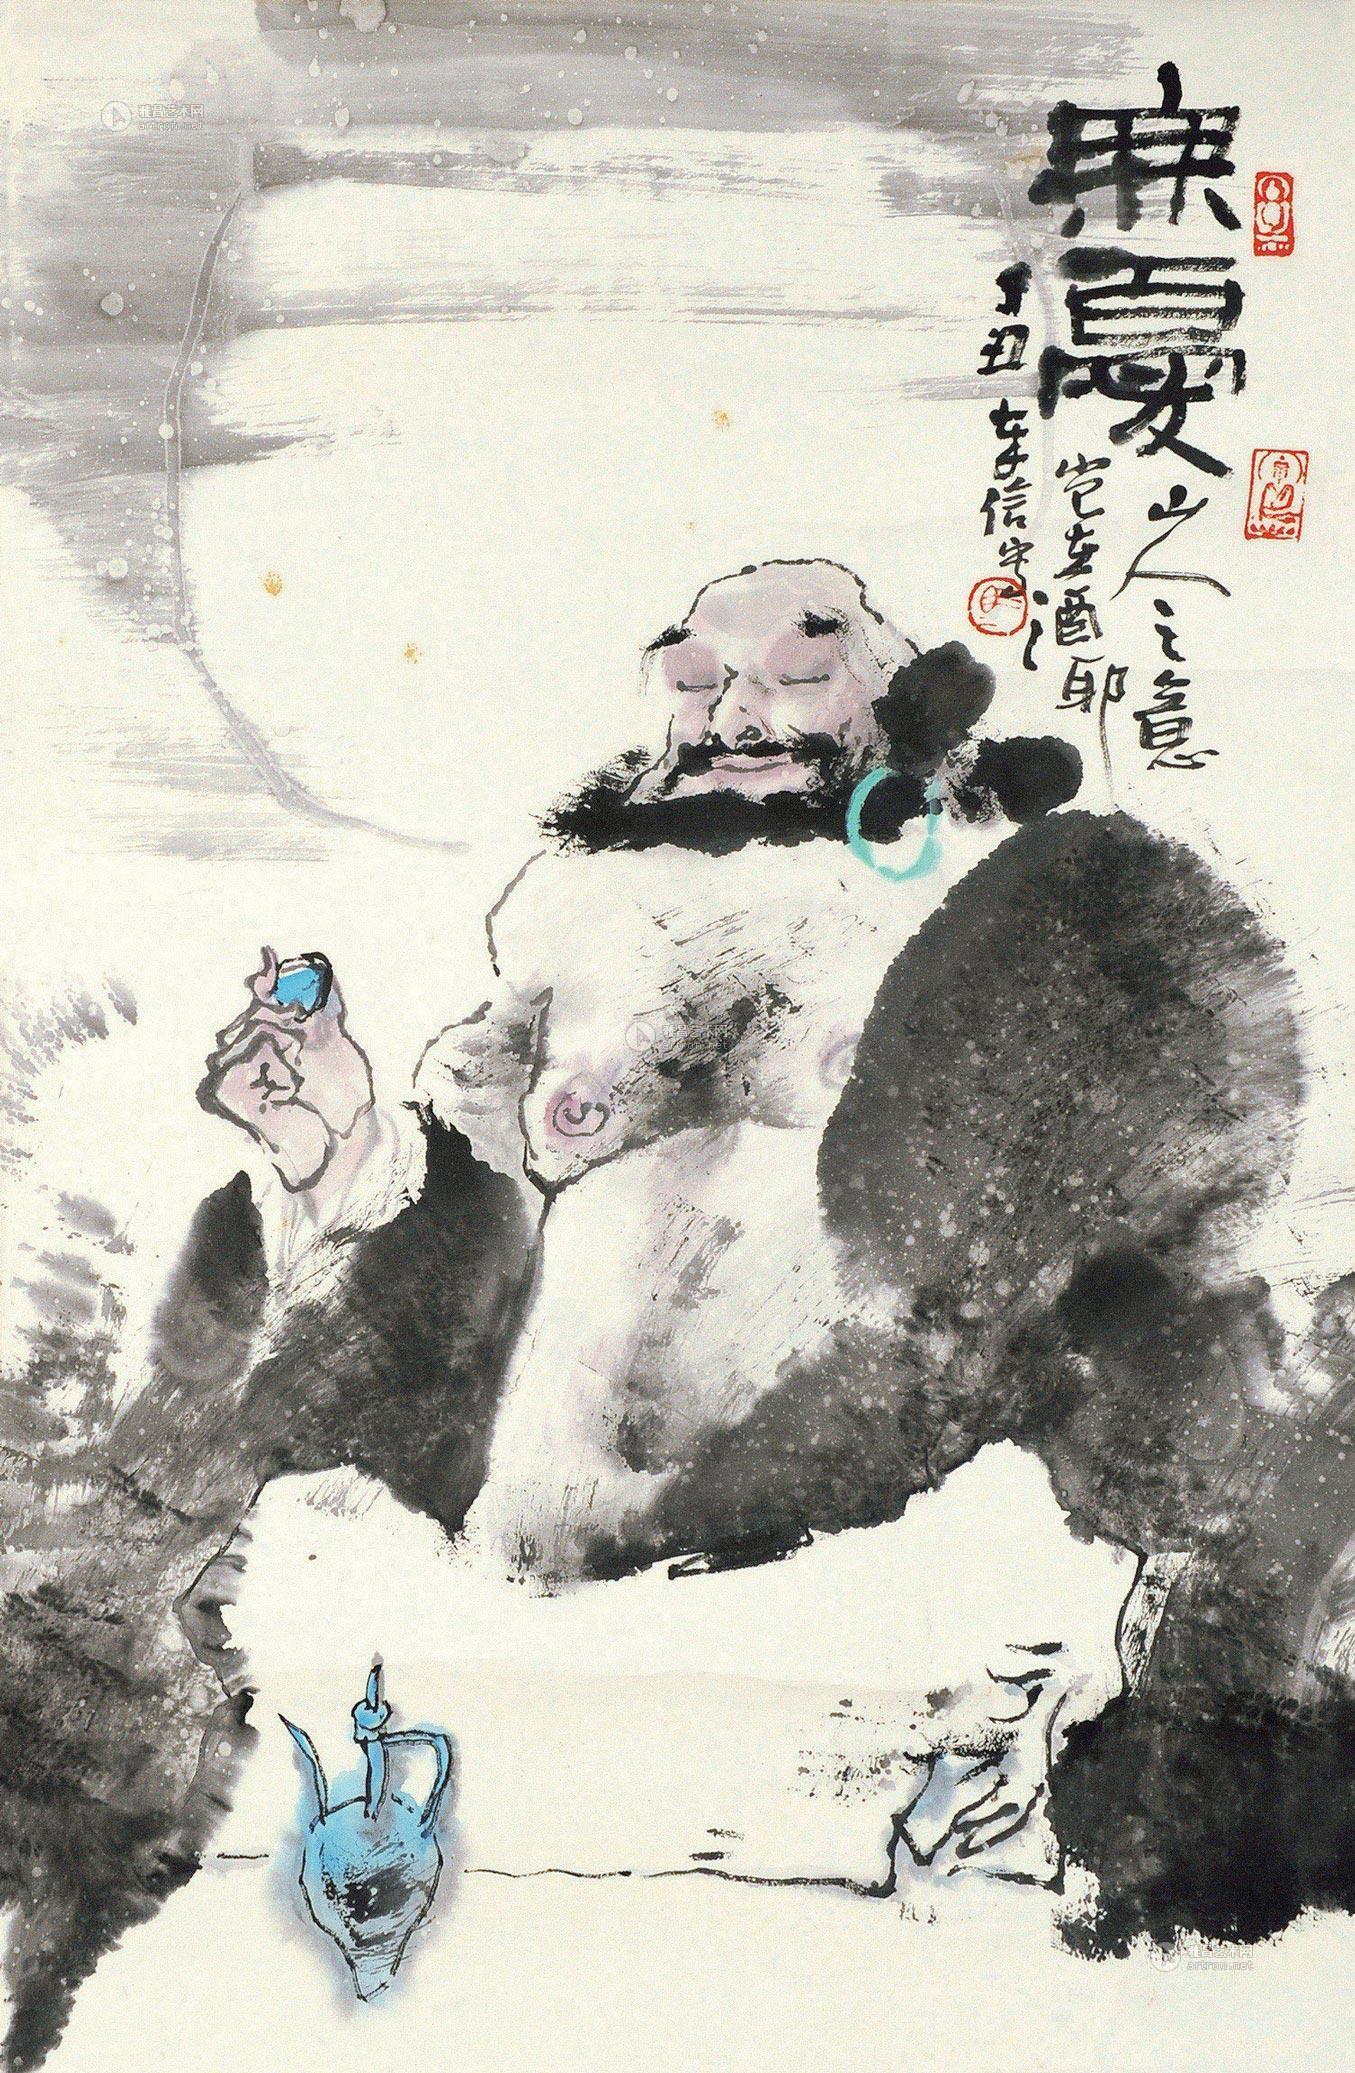 無憂
山人之意
豈在酒耶
丁丑
信
雅昌艺术网
artron.net
雅昌艺术网
artron.net
雅昌艺术网
artron.net